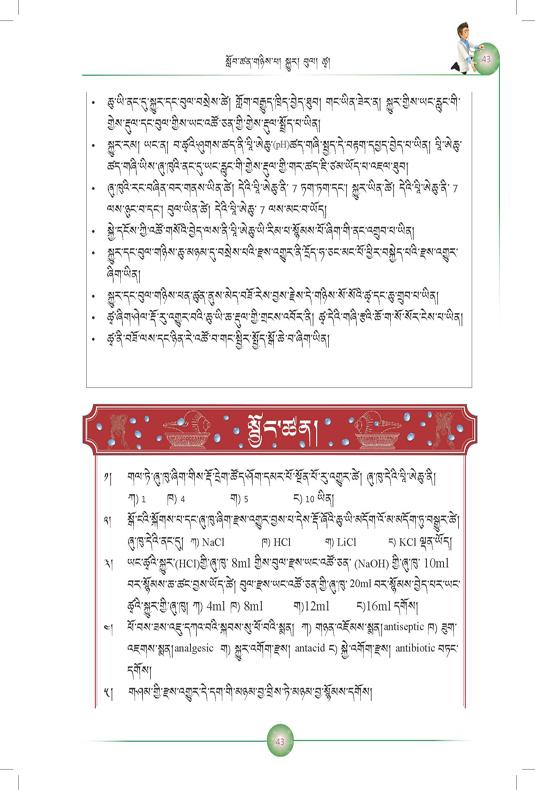 སློབ་ཚན་གཉིས་པ། སྐྱུར། བུལ། ཚྭ།
43
• ཆུ་ཡི་ནང་དུ་སྐྱུར་དང་བུལ་བསྲེས་ཚེ། གློག་བརྒྱུད་ཁྲིད་བྱེད་ཐུབ། གང་ཡིན་ཟེར་ན། སྐྱུར་གྱིས་ཡང་རླུང་གི་
གྱེས་རྡུལ་དང་བུལ་གྱིས་ཡང་འཚོ་ཅན་གྱི་གྱེས་རྡུལ་སྤྲོད་པ་ཡིན།
• སྐྱུར་རམ། ཡང་ན། བ་ཚྭའི་ཤུགས་ཚད་ནི་པཱི་ཨེཆུ་(pH)ཚད་གཞི་སྤྱད་དེ་བརྟག་དཔྱད་བྱེད་པ་ཡིན། པཱི་ཨེཆུ་
ཚད་གཞི་ཡིས་ཞུ་ཁུའི་ནང་དུ་ཡང་རླུང་གི་གྱེས་རྡུལ་གྱི་གར་ཚད་ཇི་ཙམ་ཡོད་པ་འཇལ་ཐུབ།
• ཞུ་ཁུའི་རང་བཞིན་བར་གནས་ཡིན་ཚེ། དེའི་པཱི་ཨེཆུ་ནི་ 7 ཏག་ཏག་དང་། སྐྱུར་ཡིན་ཚེ། དེའི་པཱི་ཨེཆུ་ནི་ 7
ལས་ཉུང་བ་དང་། བུལ་ཡིན་ཚེ། དེའི་པཱི་ཨེཆུ་ 7 ལས་མང་བ་ཡོད།
• སྐྱེ་དངོས་ཀྱི་འཚོ་གསོའི་བྱེད་ལས་ནི་པཱི་ཨེཆུ་ཡི་རིམ་པ་སྙོམས་པོ་ཞིག་གི་ནང་འགྲུབ་པ་ཡིན།
• སྐྱུར་དང་བུལ་གཉིས་ཆུ་མཉམ་དུ་བསྲེས་པའི་རྫས་འགྱུར་ནི་དྲོད་ཧ་ཅང་མང་པོ་ཕྱིར་བསྐྱེད་པའི་རྫས་འགྱུར་
ཞིག་ཡིན།
• སྐྱུར་དང་བུལ་གཉིས་ཕན་ཚུན་ནུས་མེད་བཟོ་རེས་བྱས་རྗེས་དེ་གཉིས་སོ་སོའི་ཚྭ་དང་ཆུ་གྲུབ་པ་ཡིན།
• ཚྭ་ཞིག་ཤེལ་རྡོ་རུ་འགྱུར་བའི་ཆུ་ཡི་ཆ་རྡུལ་གྱི་གྲངས་འབོར་ནི། ཚྭ་དེའི་གཞི་རྩའི་ཚོ་ག་སོ་སོར་ངེས་པ་ཡིན།
• ཚྭ་ནི་བཟོ་ལས་དང་ཉིན་རེ་འཚོ་བ་གང་སྤྱིར་སྤྱོད་སྒོ་ཆེ་བ་ཞིག་ཡིན།
སྦྱོང་ཚན།
༡། གལ་ཏེ་ཞུ་ཁུ་ཞིག་གིས་རྡོ་དྲེག་ཚོད་ཤོག་དམར་པོ་སྔོན་པོ་རུ་འགྱུར་ཚེ། ཞུ་ཁུ་དེའི་པཱི་ཨེཆུ་ནི།
ཀ) 1 ཁ) 4 ག) 5 ང) 10 ཡིན།
༢། སྒོ་ངའི་སྐོགས་པ་དང་ཞུ་ཁུ་ཞིག་རྫས་འགྱུར་བྱས་པ་དེས་རྡོ་ཞོའི་ཆུ་ཡི་མདོག་འོ་མ་མདོག་ཏུ་བསྒྱུར་ཚེ།
ཞུ་ཁུ་དེའི་ནང་དུ། ཀ) NaCl ཁ) HCl ག) LiCl ང) KCl ལྡན་ཡོད།
༣། ཡང་ཚྭའི་སྐྱུར་(HCl)གྱི་ཞུ་ཁུ་ 8ml གྱིས་བུལ་རྫས་ཡང་འཚོ་ཅན་ (NaOH) གྱི་ཞུ་ཁུ་ 10ml
བར་སྙོམས་ཆ་ཚང་བྱས་ཡོད་ཚེ། བུལ་རྫས་ཡང་འཚོ་ཅན་གྱི་ཞུ་ཁུ་ 20ml བར་སྙོམས་བྱེད་པར་ཡང་
ཚྭའི་སྐྱུར་གྱི་ཞུ་ཁུ། ཀ) 4ml ཁ) 8ml ག)12ml ང)16ml དགོས།
༤། ཕོ་བས་ཟས་འཇུ་དཀའ་བའི་སྐབས་སུ་ཕོ་བའི་སྨན། ཀ) གཉན་འཇོམས་སྨན།antiseptic ཁ) ཟུག་
འཇགས་སྨན།analgesic ག) སྐྱུར་འགོག་རྫས། antacid ང) སྐྱེ་འགོག་རྫས། antibiotic བཏང་
དགོས།
༥། གཤམ་གྱི་རྫས་འགྱུར་དེ་དག་གི་མཉམ་བྱ་བྲིས་ཏེ་མཉམ་བྱ་སྙོམས་དགོས།
43